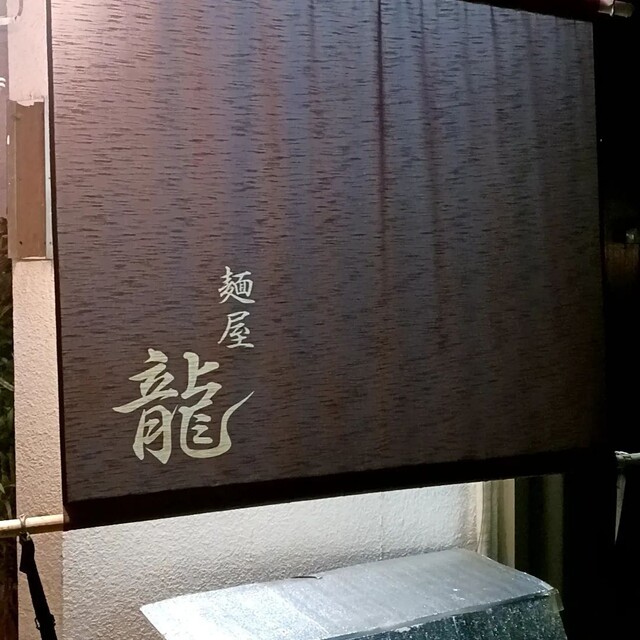 麺屋
龍